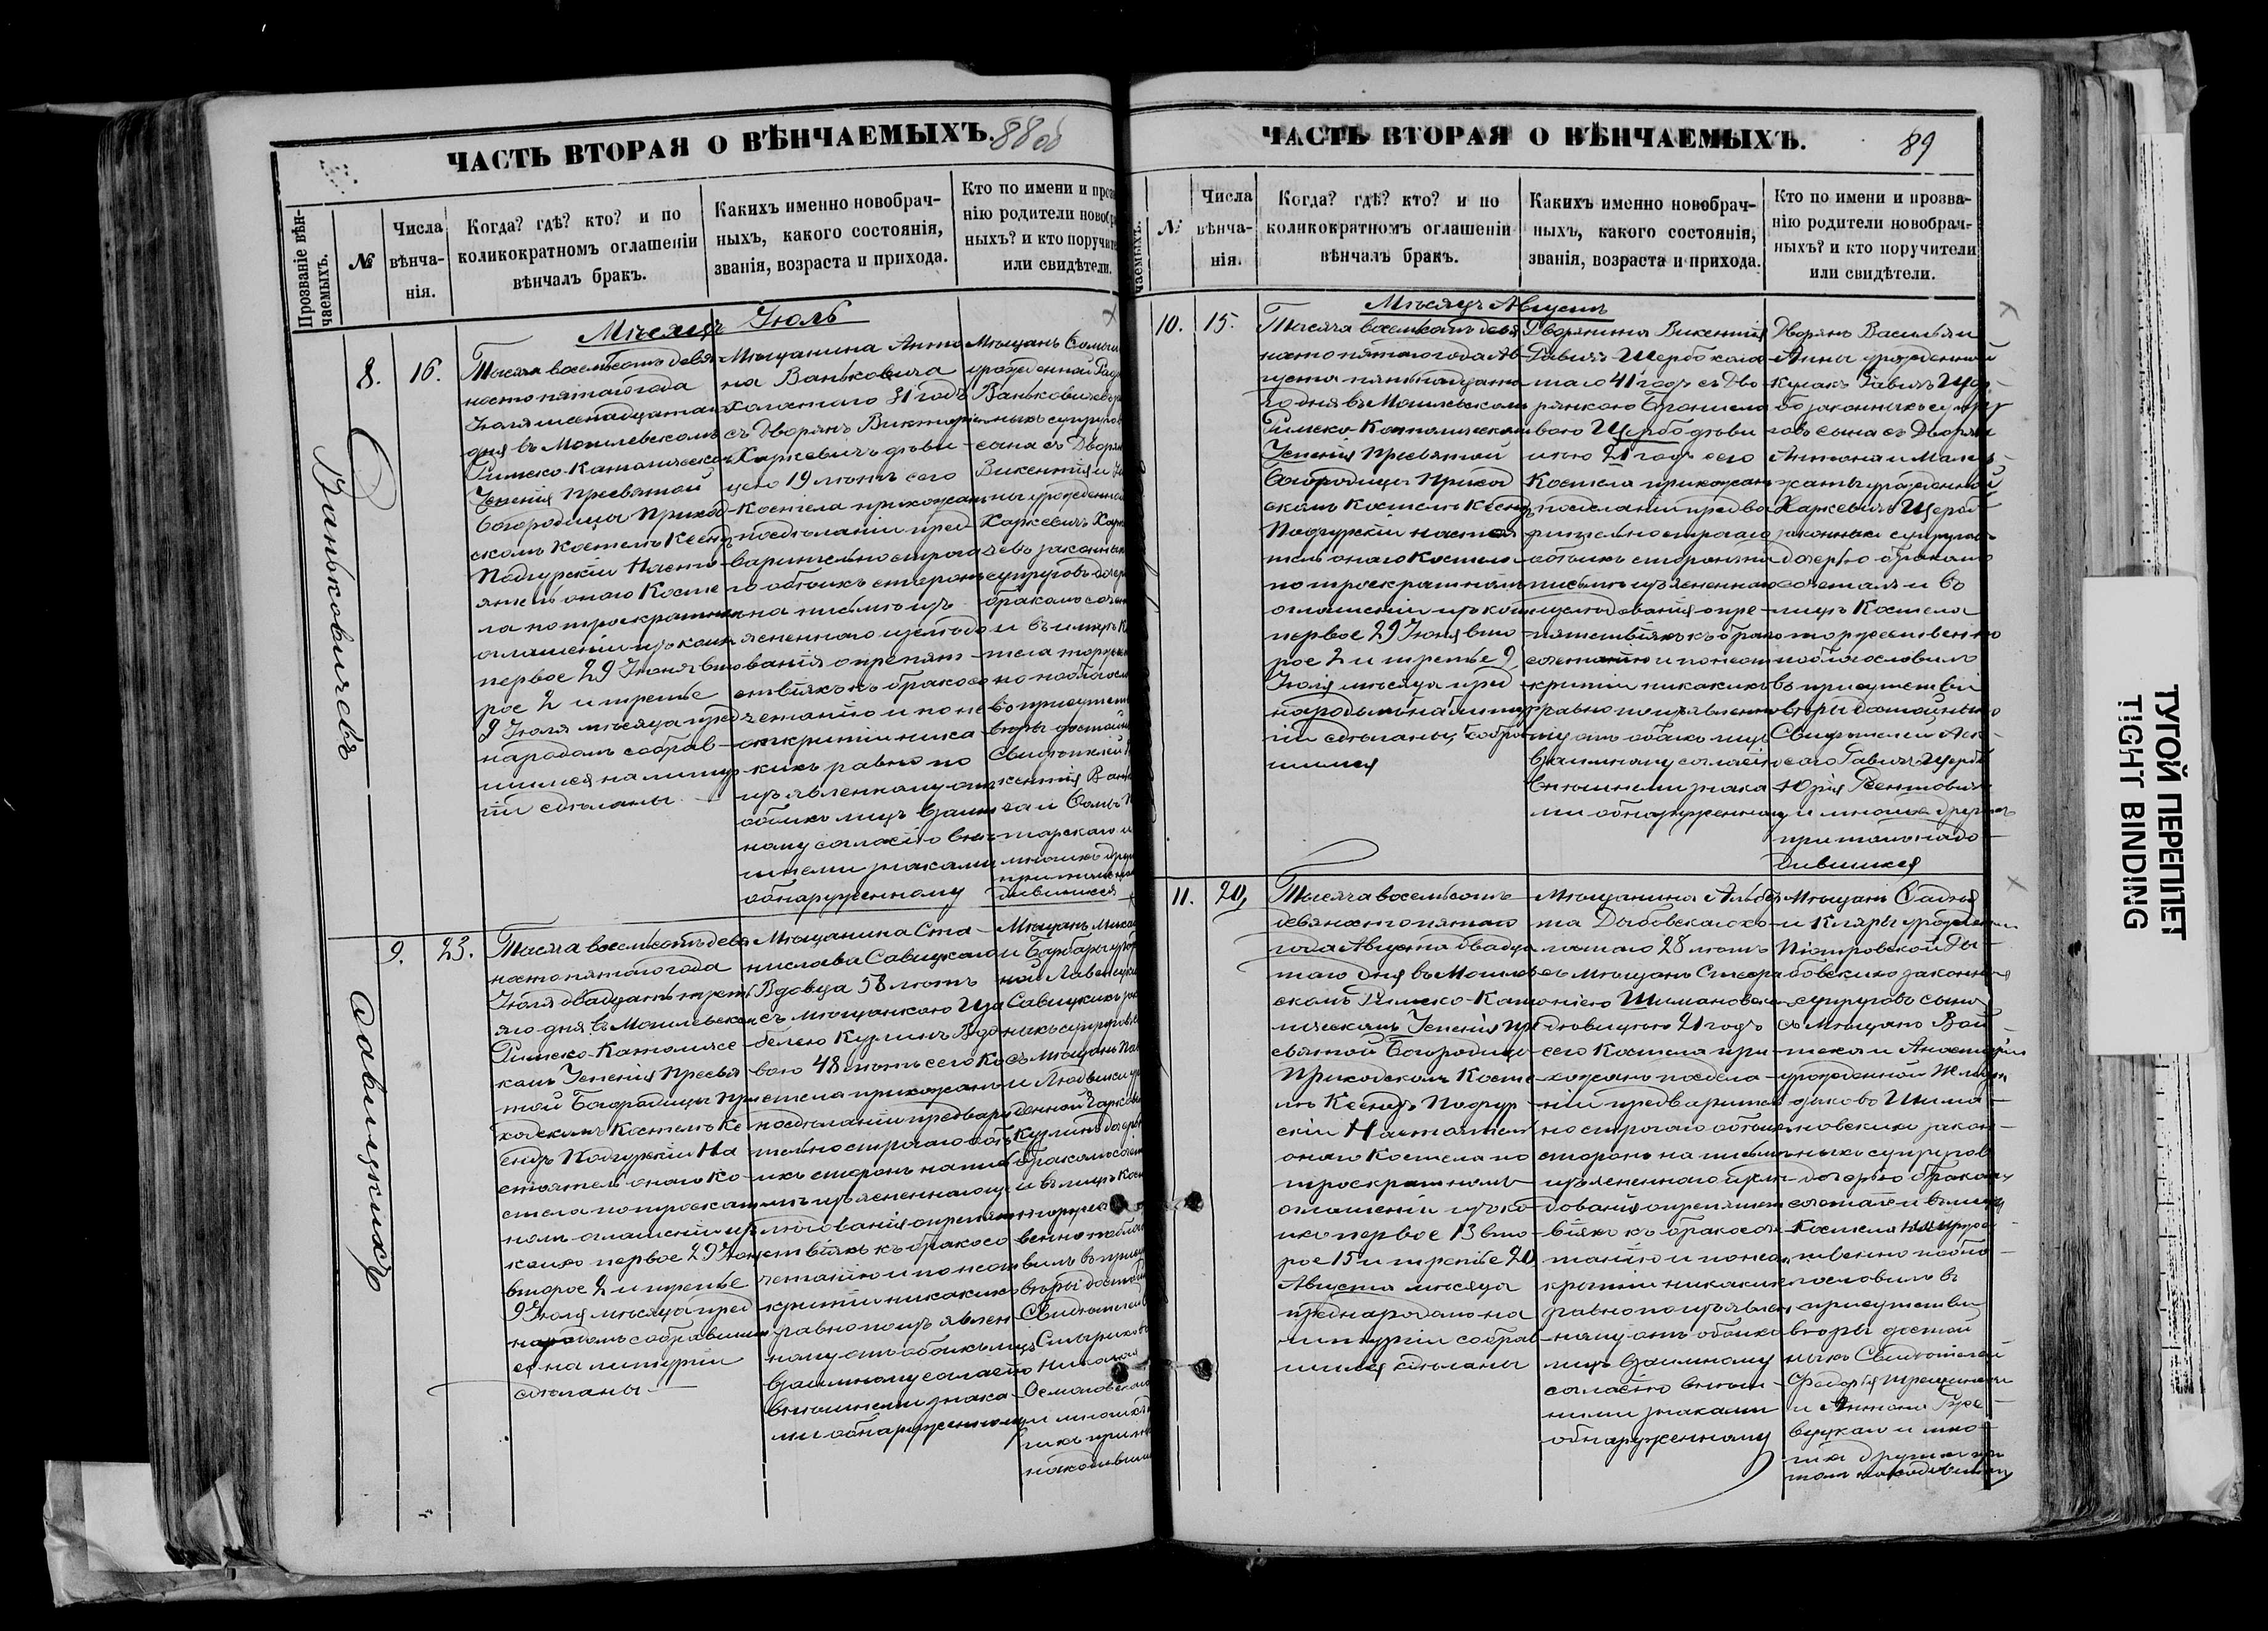 ЧАСТЬ ВТОРАЯ О ВѢНЧАЕМЫХЪ.
88 об
Прозваніе вѣн-
чаемыхъ.
№
Числа
вѣнча-
нія.
Когда? гдѣ? кто? и по
коликократномъ оглашеніи
вѣнчалъ бракъ.
Какихъ именно новобрач-
ныхъ, какого состоянія,
званія, возраста и прихода.
Кто по имени и проз
нію родители новобр
ныхъ? и кто поручите
или свидѣтели.
Мѣсяцъ Іюль
Ваньковичевъ
8.
16.
Тысяча восемьсотъ девя
носто пятаго года
Іюля шестнадцатаго
дня въ Могилевскомъ
Римско-Католическо
Успенія Пресвятой
Богородицы Приход
скомъ Костелѣ Ксендз
Подгурскій Насто
ятель онаго Косте
ла по троекратном
оглашеніи изъ коих
первое 29 Іюня вто
рое 2 и третье
9 Іюля мѣсяца пред
народомъ собрав-
шимся на литур
гіи сдѣланы.
Мѣщанина Анто
на Ваньковича
холостаго 31 годъ
съ Дворян. Викторіею
Харкевичъ дѣви
цею 19 лѣтъ сего
Костела прихожан
по сдѣланіи пред
варительно строга
го обоихъ сторонъ
на письмѣ изъ
ясненнаго изслѣдо
ванія о препят
ствіяхъ къ бракосо
четанію и по не
открытіи ника
кихъ равно по
изъявленному отъ
обоихъ лицъ взаим
ному согласію внѣ
шними знаками
обнаруженному
Мѣщанъ
урожденной
Ваньковичевъ
ныхъ супруговъ
сына съ Дворян
Викентія и
ны урожденной
Харкевичъ
чевъ законных
супруговъ дочер
бракомъ сочет
и въ лицѣ К
стела торжест
но поблагосл
въ присутств
вѣры достойн
Свидѣтелей
кентія
многихъ други
при томъ нахо
дившихся
Савицкихъ
9.
23.
Тысяча восемьсотъ девя
носто пятаго года
Іюля двадцать треть
яго дня въ Могилевском
Римско-Католиче
комъ Успенія Пресвя
той Богородицы При
ходскомъ Костелѣ Кс
ендзъ Подгурскій На
стоятель онаго Ко-
стела по троекрат
номъ оглашеніи изъ
коихъ первое 29 Іюня
второе 2 и третье
9 Іюля мѣсяца пред
народомъ собравшим
ся на литургіи
сдѣланы
Мѣщанина Ста-
нислава Савицкаго
Вдовца 58 лѣтъ
съ мѣщанкою Иза
белею Кузминъ Вдо
вою 48 лѣтъ сего Ко
стела прихожанъ
по сдѣланіи предвари
тельно строгаго обо
ихъ сторонъ на пись
мѣ изъясненнаго изс
лѣдованія о препят
ствіяхъ къ бракосо
четанію и по неот
крытіи никакихъ
равно по изъявлен
ному отъ обоихъ лицъ
взаимному согласію
внѣшними знака
ми обнаруженному
Мѣщанъ
и Барбары урож
ной
Савицкихъ зак
ныхъ супруговъ
съ Мѣщанъ
и Людвики ур
денной
Кузминъ дочер
бракомъ сочет
и въ лицѣ Кост
торжест
венно поблаго
вилъ въ присут
вѣры достойн
Свидѣтелей
Николая
и многихъ
гихъ при том
находивших
ЧАСТЬ ВТОРАЯ О ВѢНЧАЕМЫХЪ.
89
чаемыхъ.
№
Числа
вѣнча-
нія.
Когда? гдѣ? кто? и по
коликократномъ оглашеніи
вѣнчалъ бракъ.
Какихъ именно новобрач-
ныхъ, какого состоянія,
званія, возраста и прихода.
Кто по имени и прозва-
нію родители новобрач-
ныхъ? и кто поручители
или свидѣтели.
Мѣсяцъ Августъ
10.
15.
Тысяча восемьсотъ девя
носто пятаго года Ав
густа пятнадцата
го дня въ Могилевском
Римско-Католическом
Успенія Пресвятой
Богородицы Приход
скомъ Костелѣ Ксендз
Подгурскій Настоя
тель онаго Костела
по троекратномъ
оглашеніи изъ коих
первое 29 Іюня вто
рое 2 и третье 9
Іюля мѣсяца пред
народомъ на литур
гіи сдѣланы, собрав
шимся
Дворянина Викентія
Гавичъ Щербо холос
таго 41 годъ съ Дво
рянкою Брониславою
Щербо дѣви
цею 21 годъ сего
Костела прихожан
по сдѣланіи предва
рительно строгаго
обоихъ сторонъ на
письмѣ изъясненнаго
изслѣдованія о пре
пятствіяхъ къ брако
сочетанію и по неот
крытіи никакихъ
равно по изъявленно
му отъ обоихъ лицъ
взаимному согласію
внѣшними знака
ми обнаруженному
Дворянъ Василья и
Анны урожденной
Кулакъ Гавичъ Щер-
бо законныхъ супру
говъ сына съ Дворян
Антона и Мал
жаты урожденной
Харкевичъ Щерб
законныхъ супругов
дочерью бракомъ
сочеталъ и въ
лицѣ Костела
торжественно
поблагословилъ
въ присутствіи
вѣры достойныхъ
Свидѣтелей
Гавичъ Щербо
Юрія
и многихъ другихъ
при томъ нахо
дившихся
11.
20,
Тысяча восемьсотъ
девяносто пятаго
года Августа двадца
таго дня въ Могилев
скомъ Римско-Като
лическомъ Успенія Пре
святой Богородицы
Приходскомъ Косте
лѣ Ксендзъ Подгур
скій Настоятель
онаго Костела по
троекратномъ
оглашеніи изъ ко
ихъ первое 13 вто
рое 15 и третье 20
Августа мѣсяца
предъ народомъ на
литургіи собрав
шимся сдѣланы
Мѣщанина Альбер
та Дыбовскаго хо
лостаго 28 лѣтъ
съ мѣщанк.
Шимановскою
дѣвицею 21 годъ
сего Костела при
хожанъ по сдѣла
ніи предварител
но строгаго обоихъ
сторонъ на письмѣ
изъясненнаго изслѣ
дованія о препятст
віяхъ къ бракосоче
танію и по неот
крытіи никакихъ
равно по изъявлен
ному отъ обоихъ
лицъ взаимному
согласію внѣш
ними знаками
обнаруженному
Мѣщанъ
и Клары урожденной
Піотровской Ды
бовскихъ законныхъ
супруговъ сына
съ Мѣщанъ Вой
тѣха и Анастазіи
урожденной
Шима
новскихъ закон
ныхъ супруговъ
дочерью бракомъ
сочеталъ и въ лицѣ
Костела торже
ственно побла
гословилъ въ
присутствіи
вѣры достой
ныхъ Свидѣтелей
и Антона
и мно
гихъ другихъ при
томъ находившихся
ТУГОЙ ПЕРЕПЛЕТ
TIGHT BINDING